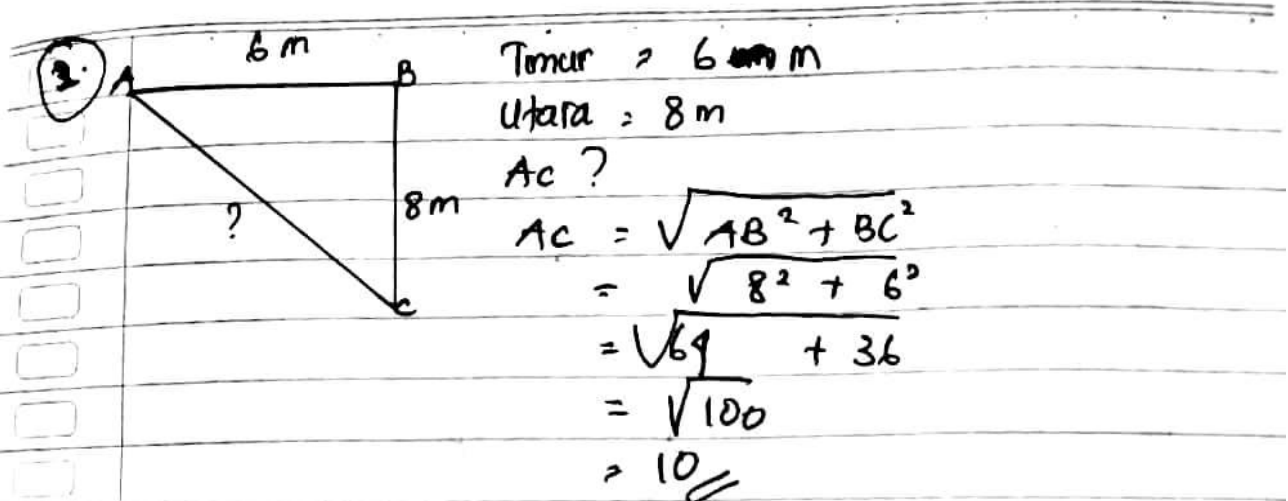 3.
6 m
A
B
8 m
?
C
Timur = 6 m
Utara = 8 m
AC ?
AC = √AB² + BC²
= √8² + 6²
= √64 + 36
= √100
= 10